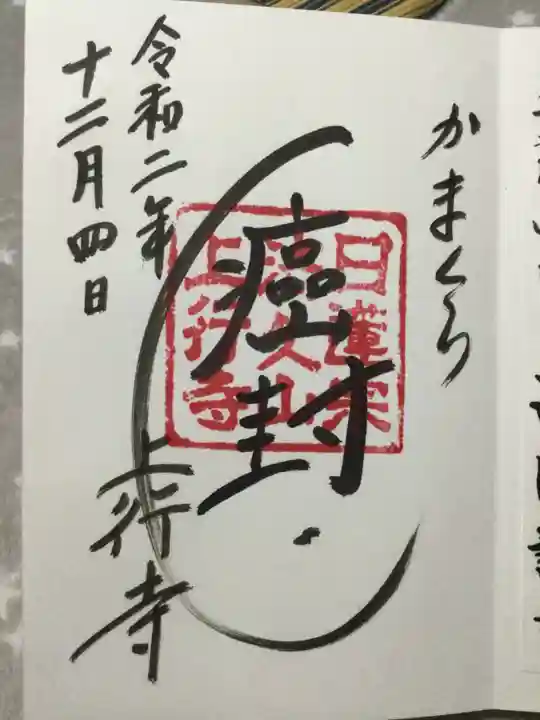 かまくら
癌封
令和二年
十二月四日
上行寺
日蓮宗
久山
上行寺